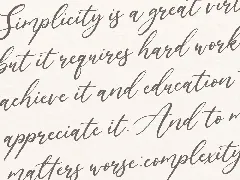 Simplicity is a great virt
but it requires hard work
achieve it and education
appreciate it. And to m
matters worse: complexity